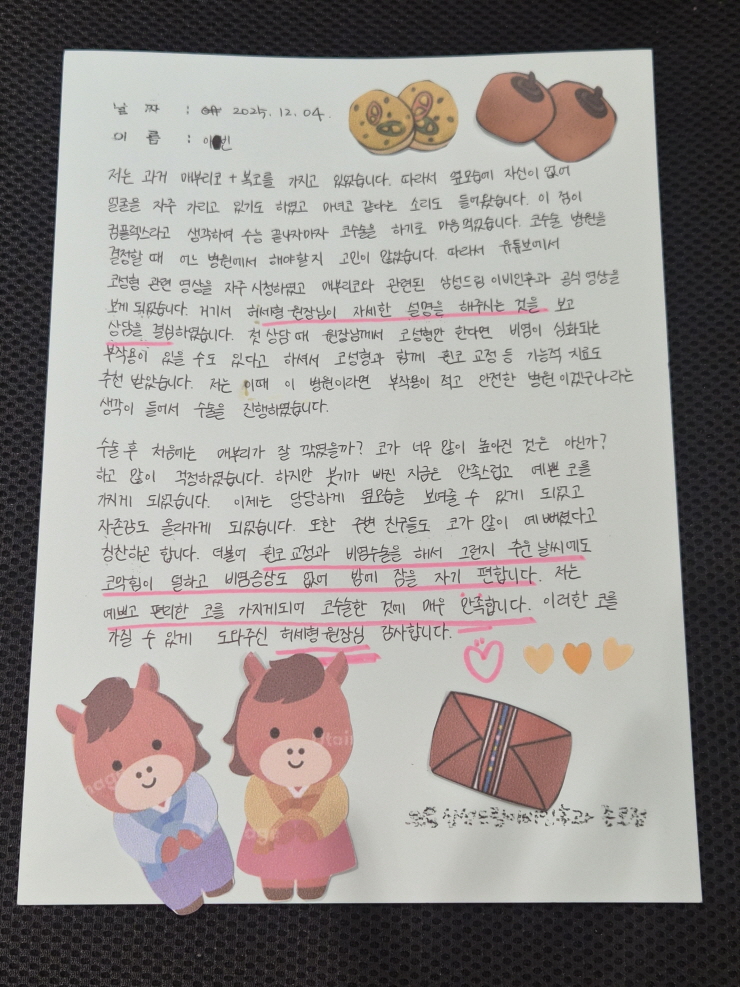 날 짜 : 2025. 12. 04.
이 름 : 이 빈
저는 과거 매부리코 + 복코를 가지고 있었습니다. 따라서 옆모습에 자신이 없어
얼굴을 자주 가리고 있기도 하였고 마녀코 같다는 소리도 들어왔습니다. 이 점이
컴플렉스라고 생각하여 수능 끝나자마자 코수술을 하기로 마음 먹었습니다. 코수술 병원을
결정할 때 어느 병원에서 해야할지 고민이 많았습니다. 따라서 유튜브에서
코성형 관련 영상을 자주 시청하였고 매부리코와 관련된 삼성드림 이비인후과 공식 영상을
보게 되었습니다. 거기서 허세형 원장님이 자세한 설명을 해주시는 것을 보고
상담을 결심하였습니다. 첫 상담 때 원장님께서 코성형만 한다면 비염이 심화되는
부작용이 있을 수도 있다고 하셔서 코성형과 함께 휜코 교정 등 기능적 치료도
추천 받았습니다. 저는 이때 이 병원이라면 부작용이 적고 안전한 병원이겠구나라는
생각이 들어서 수술을 진행하였습니다.
수술 후 처음에는 매부리가 잘 깎였을까? 코가 너무 많이 높아진 것은 아닌가?
하고 많이 걱정하였습니다. 하지만 붓기가 빠진 지금은 만족스럽고 예쁜 코를
가지게 되었습니다. 이제는 당당하게 옆모습을 보여줄 수 있게 되었고
자존감도 올라가게 되었습니다. 또한 주변 친구들도 코가 많이 예뻐졌다고
칭찬하곤 합니다. 더불어 휜코 교정과 비염수술을 해서 그런지 추운 날씨에도
코막힘이 덜하고 비염증상도 없어 밤에 잠을 자기 편합니다. 저는
예쁘고 편리한 코를 가지게되어 코수술한 것에 매우 만족합니다. 이러한 코를
가질 수 있게 도와주신 허세형 원장님 감사합니다.